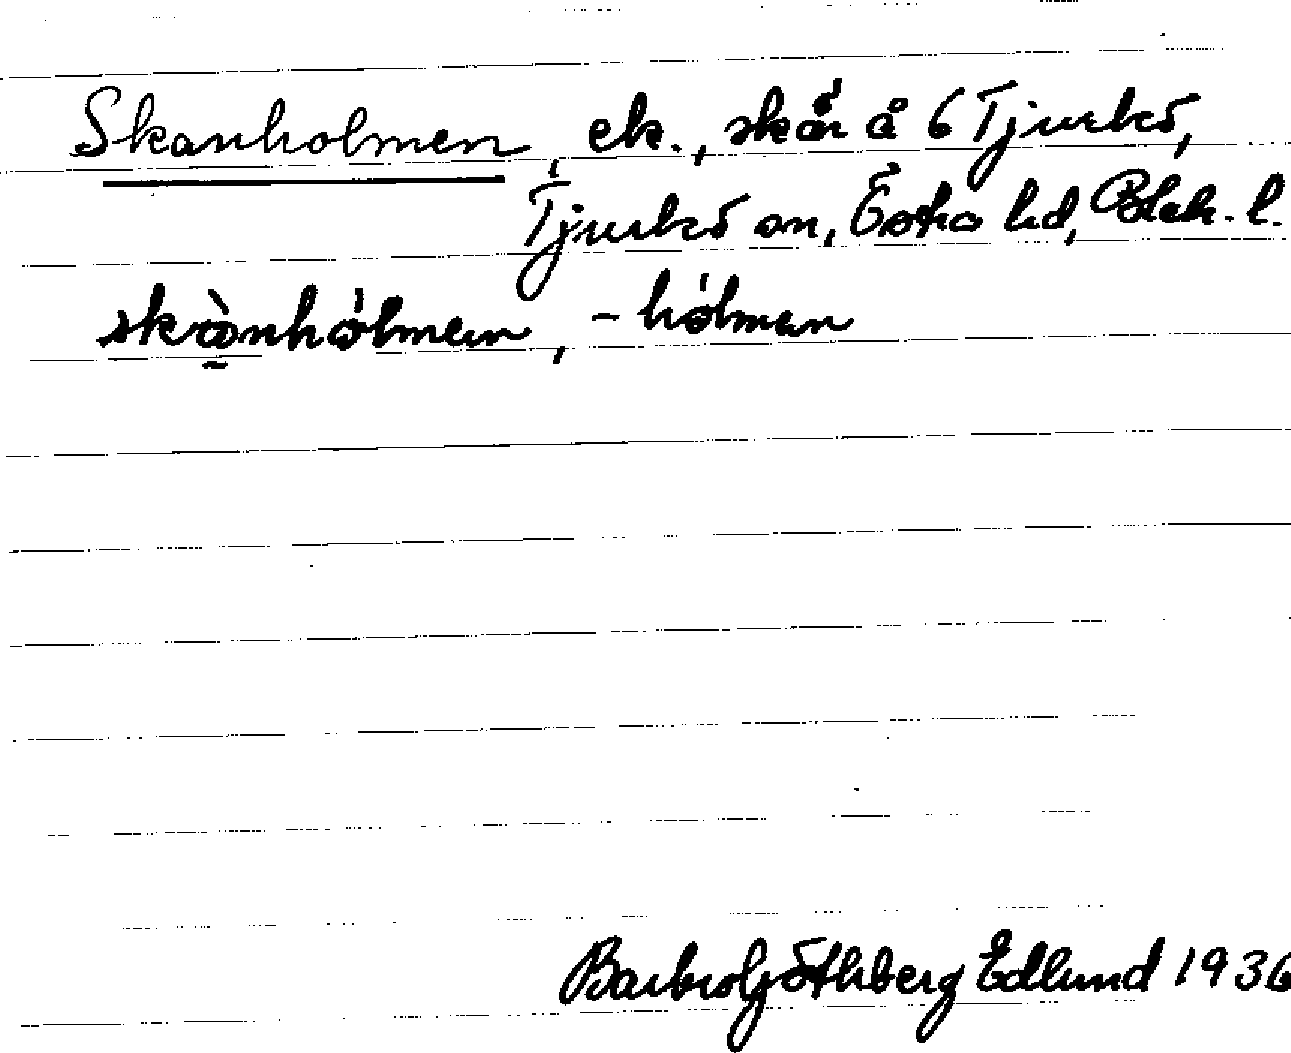 Skanholmen, ek., skär å 6 Tjurkö,
Tjurkö sn, Östra hd, Blek. l.
skànhólmen, -hólmen
Barbro Göthberg Edlund 1936